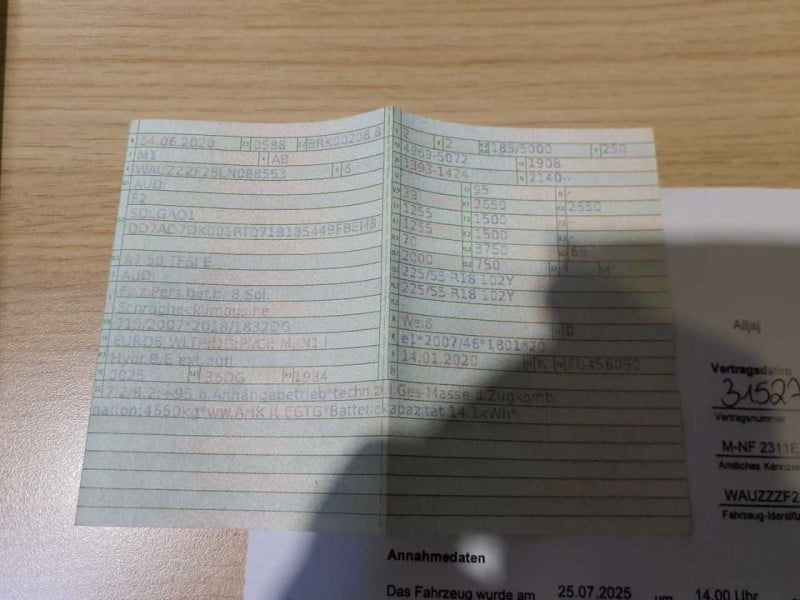 04.06.2020 0588 BRK00208 8
M1 AB
WAUZZZF28LN088553 5
AUDI
F2
A7 50 TFSI E
AUDI
Fz.z.Pers.bef.b. 8 Spl.
Schräghecklimousine
715/2007*2018/1832DG
Hybr.B/E ext.aufl.
0025 36DG 1984
2 2 185/5000 250
4969-5072 1908
1393-1424 2140
39 95
1255 2650 2650
1255 1500
70 1500
2000 3750 65
750
225/55 R18 102Y
225/55 R18 102Y
Weiß 0
e1*2007/46*1801*20
14.01.2020 K FU456090
7.2/8.2:+95 b.Anhängebetrieb*techn.zul.Ges-Masse d.Zugkomb
nation:4550kg*ww.AHK lt.EGTG*Batteriekapazität 14.1kWh*
Alijaj
Vertragsdaten
Vertragsnummer
M-NF 2311E
Amtliches Kennze
WAUZZZF2
Fahrzeug-Identifi
Annahmedaten
Das Fahrzeug wurde am 25.07.2025 um 14.00 Uhr